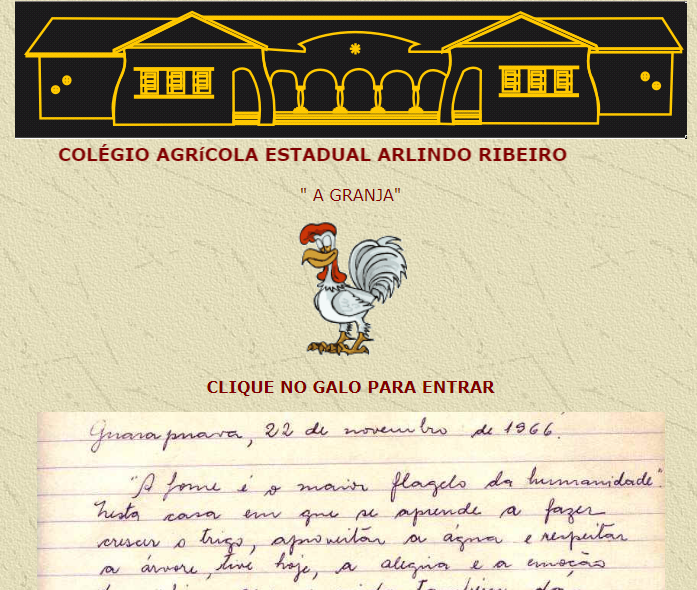 COLÉGIO AGRíCOLA ESTADUAL ARLINDO RIBEIRO
" A GRANJA"
CLIQUE NO GALO PARA ENTRAR
Guarapuava, 22 de novembro de 1966.
"A fome é o maior flagelo da humanidade".
Nesta casa em que se aprende a fazer
crescer o trigo, aproveitar a água e respeitar
a árvore, tive hoje, a alegria e a emoção